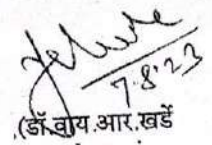 7.8.23
(डॉ.वाय.आर.खर्डे